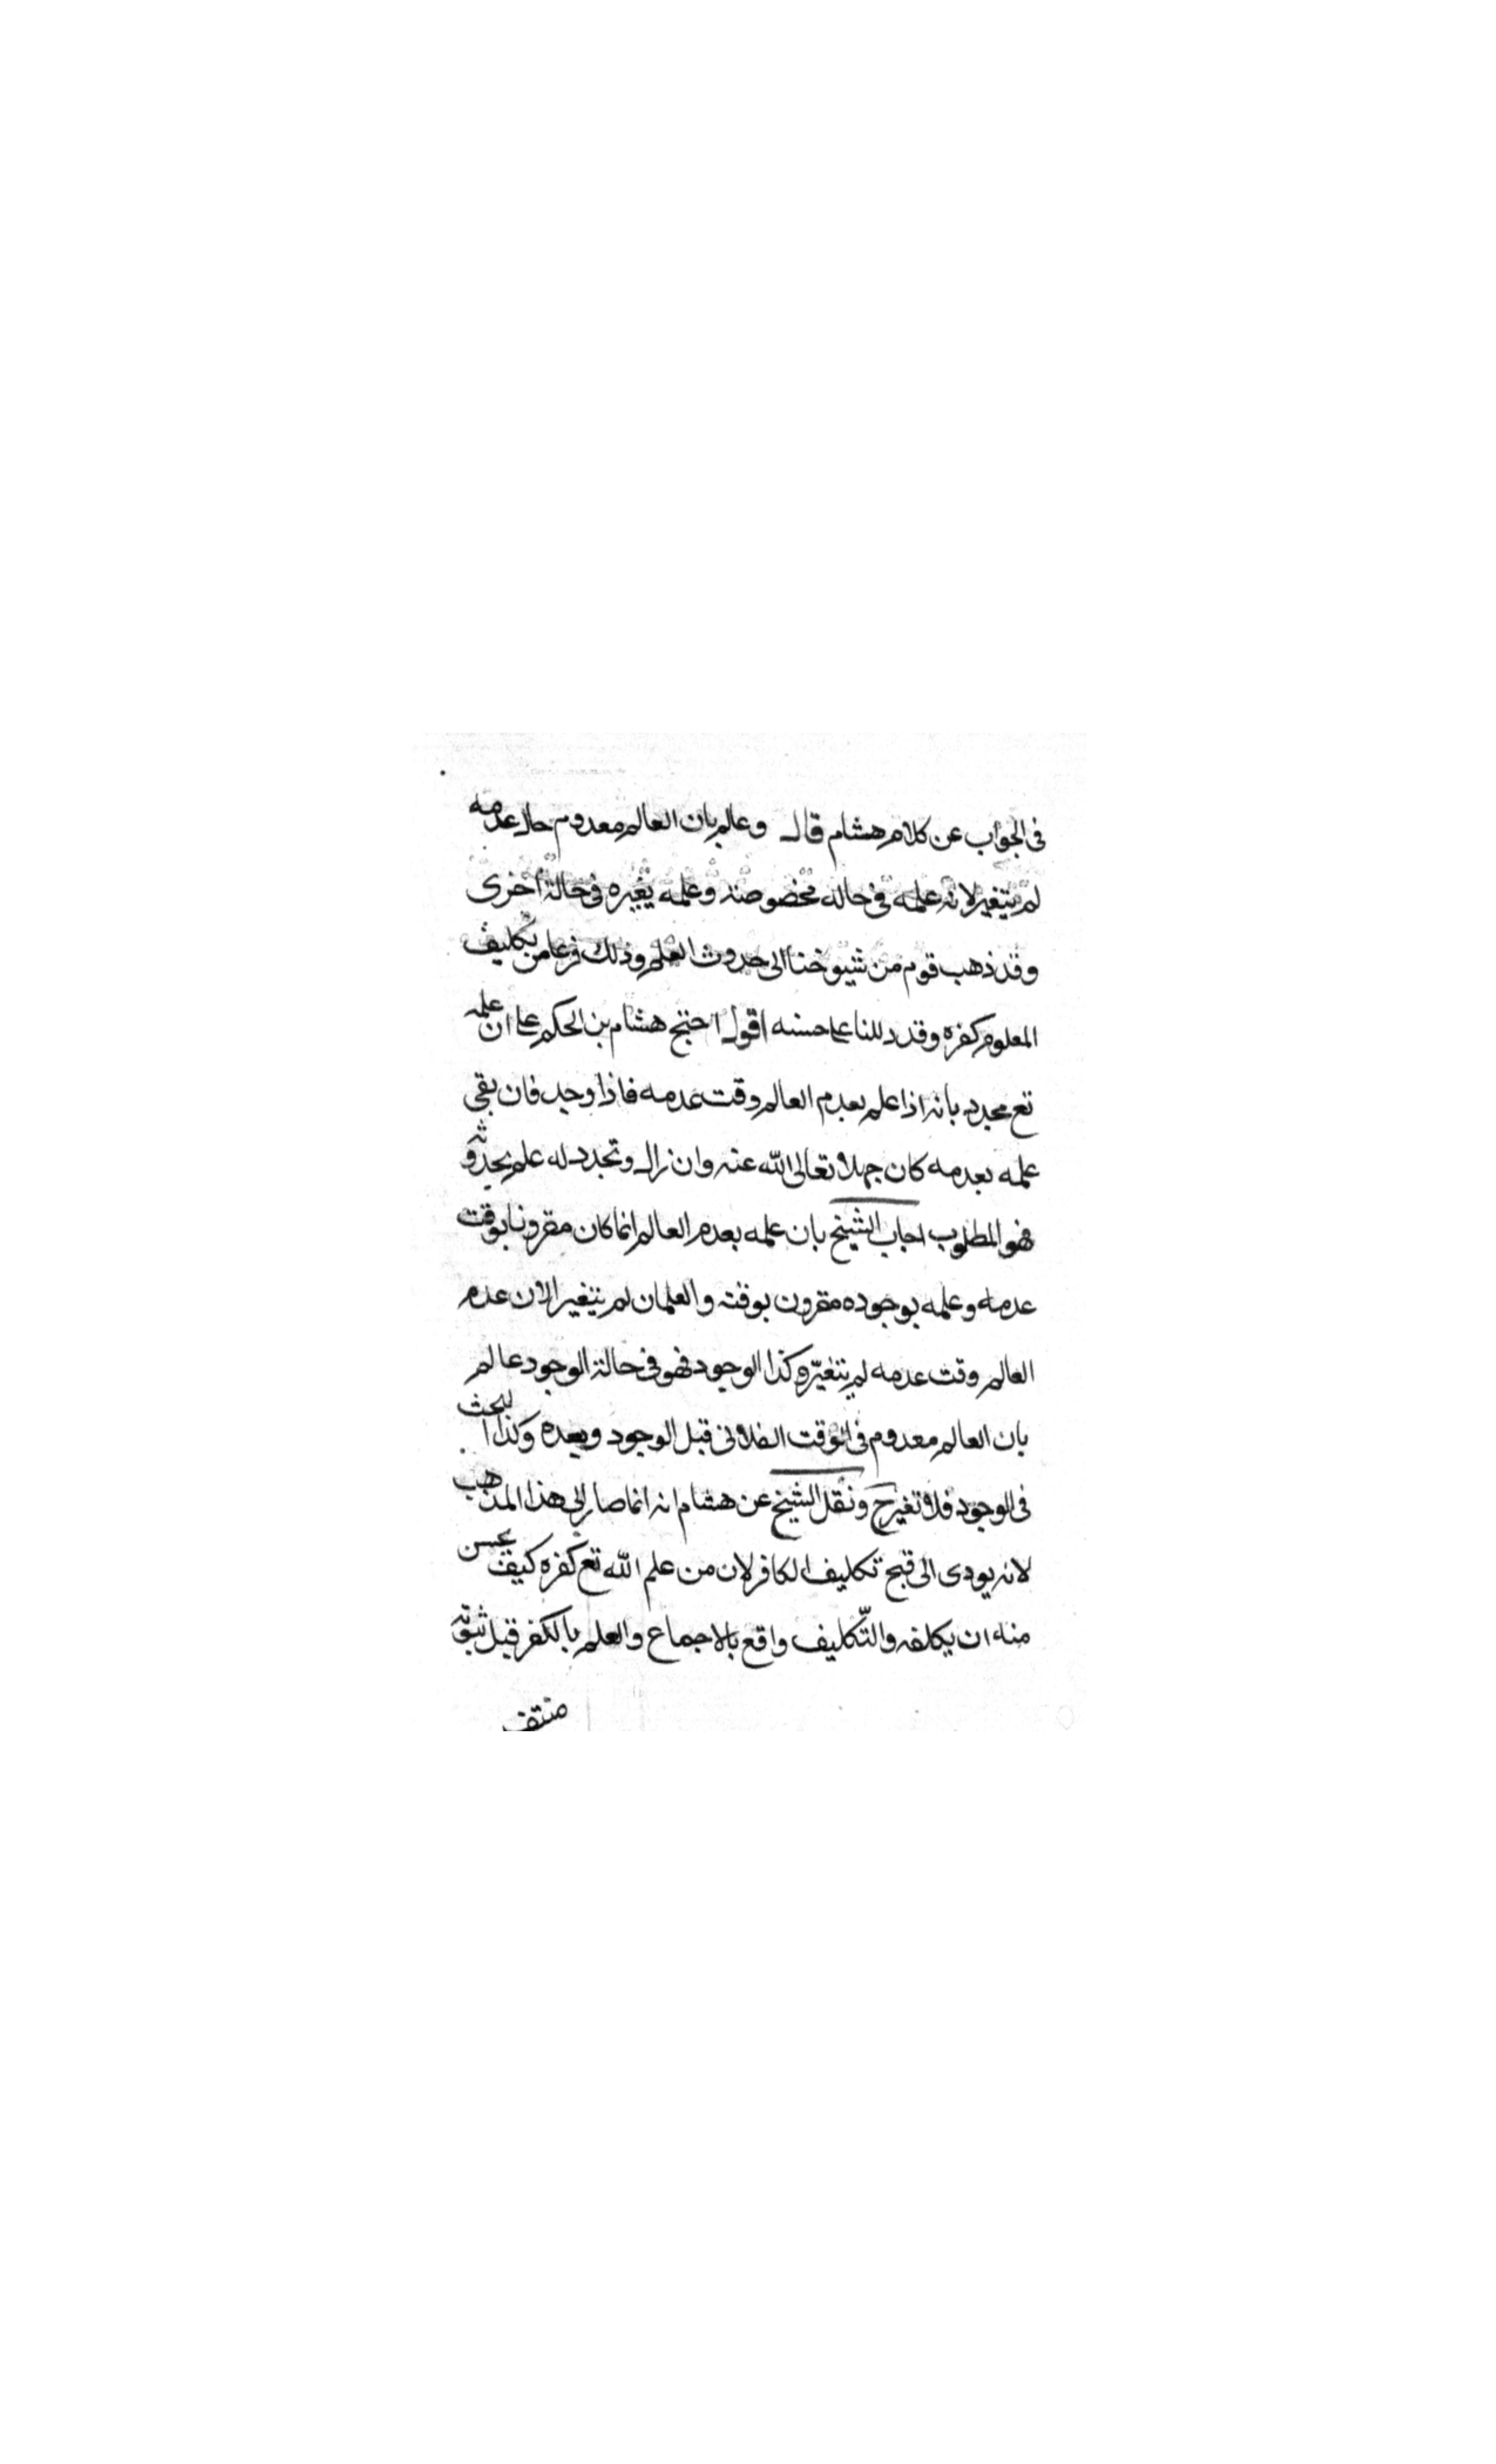 فى الجواب عن كلام هشام قال وعالم بان العالم معدوم حال عدمه
لم يتغير لانه علمه فى حاله مخصوصة وعلمه بغيره فى حالة اخرى
وقد ذهب قوم من شيوخنا الى حدوث العلم وذلك فرعا من تكليف
المعلوم كفره وقد دللنا على حسنه اقول احتج هشام بن الحكم على ان علمه
تع مجدد بانه اذا علم بعدم العالم وقت عدمه فاذا وجد فان بقى
علمه بعدمه كان جهلا تعالى الله عنه وان زال وتجدد له علم بحدوثه
فهو المطلوب اجاب الشيخ بان علمه بعدم العالم انما كان مقرونا بوقت
عدمه وعلمه بوجوده مقرون بوقته والعلمان لم يتغيرا لان عدم
العالم وقت عدمه لم يتغير وكذا الوجود فهو فى حالة الوجود عالم
بان العالم معدوم فى الوقت الفلانى قبل الوجود وبعده وكذا البحث
فى الوجود فلا تغير ح ونقل الشيخ عن هشام انه انما صار الى هذا المذهب
لانه يودى الى قبح تكليف الكافر لان من علم الله تع كفره كيف يحسن
منه ان يكلفه والتّكليف واقع بالاجماع والعلم بالكفر قبل ثبوته
منتف